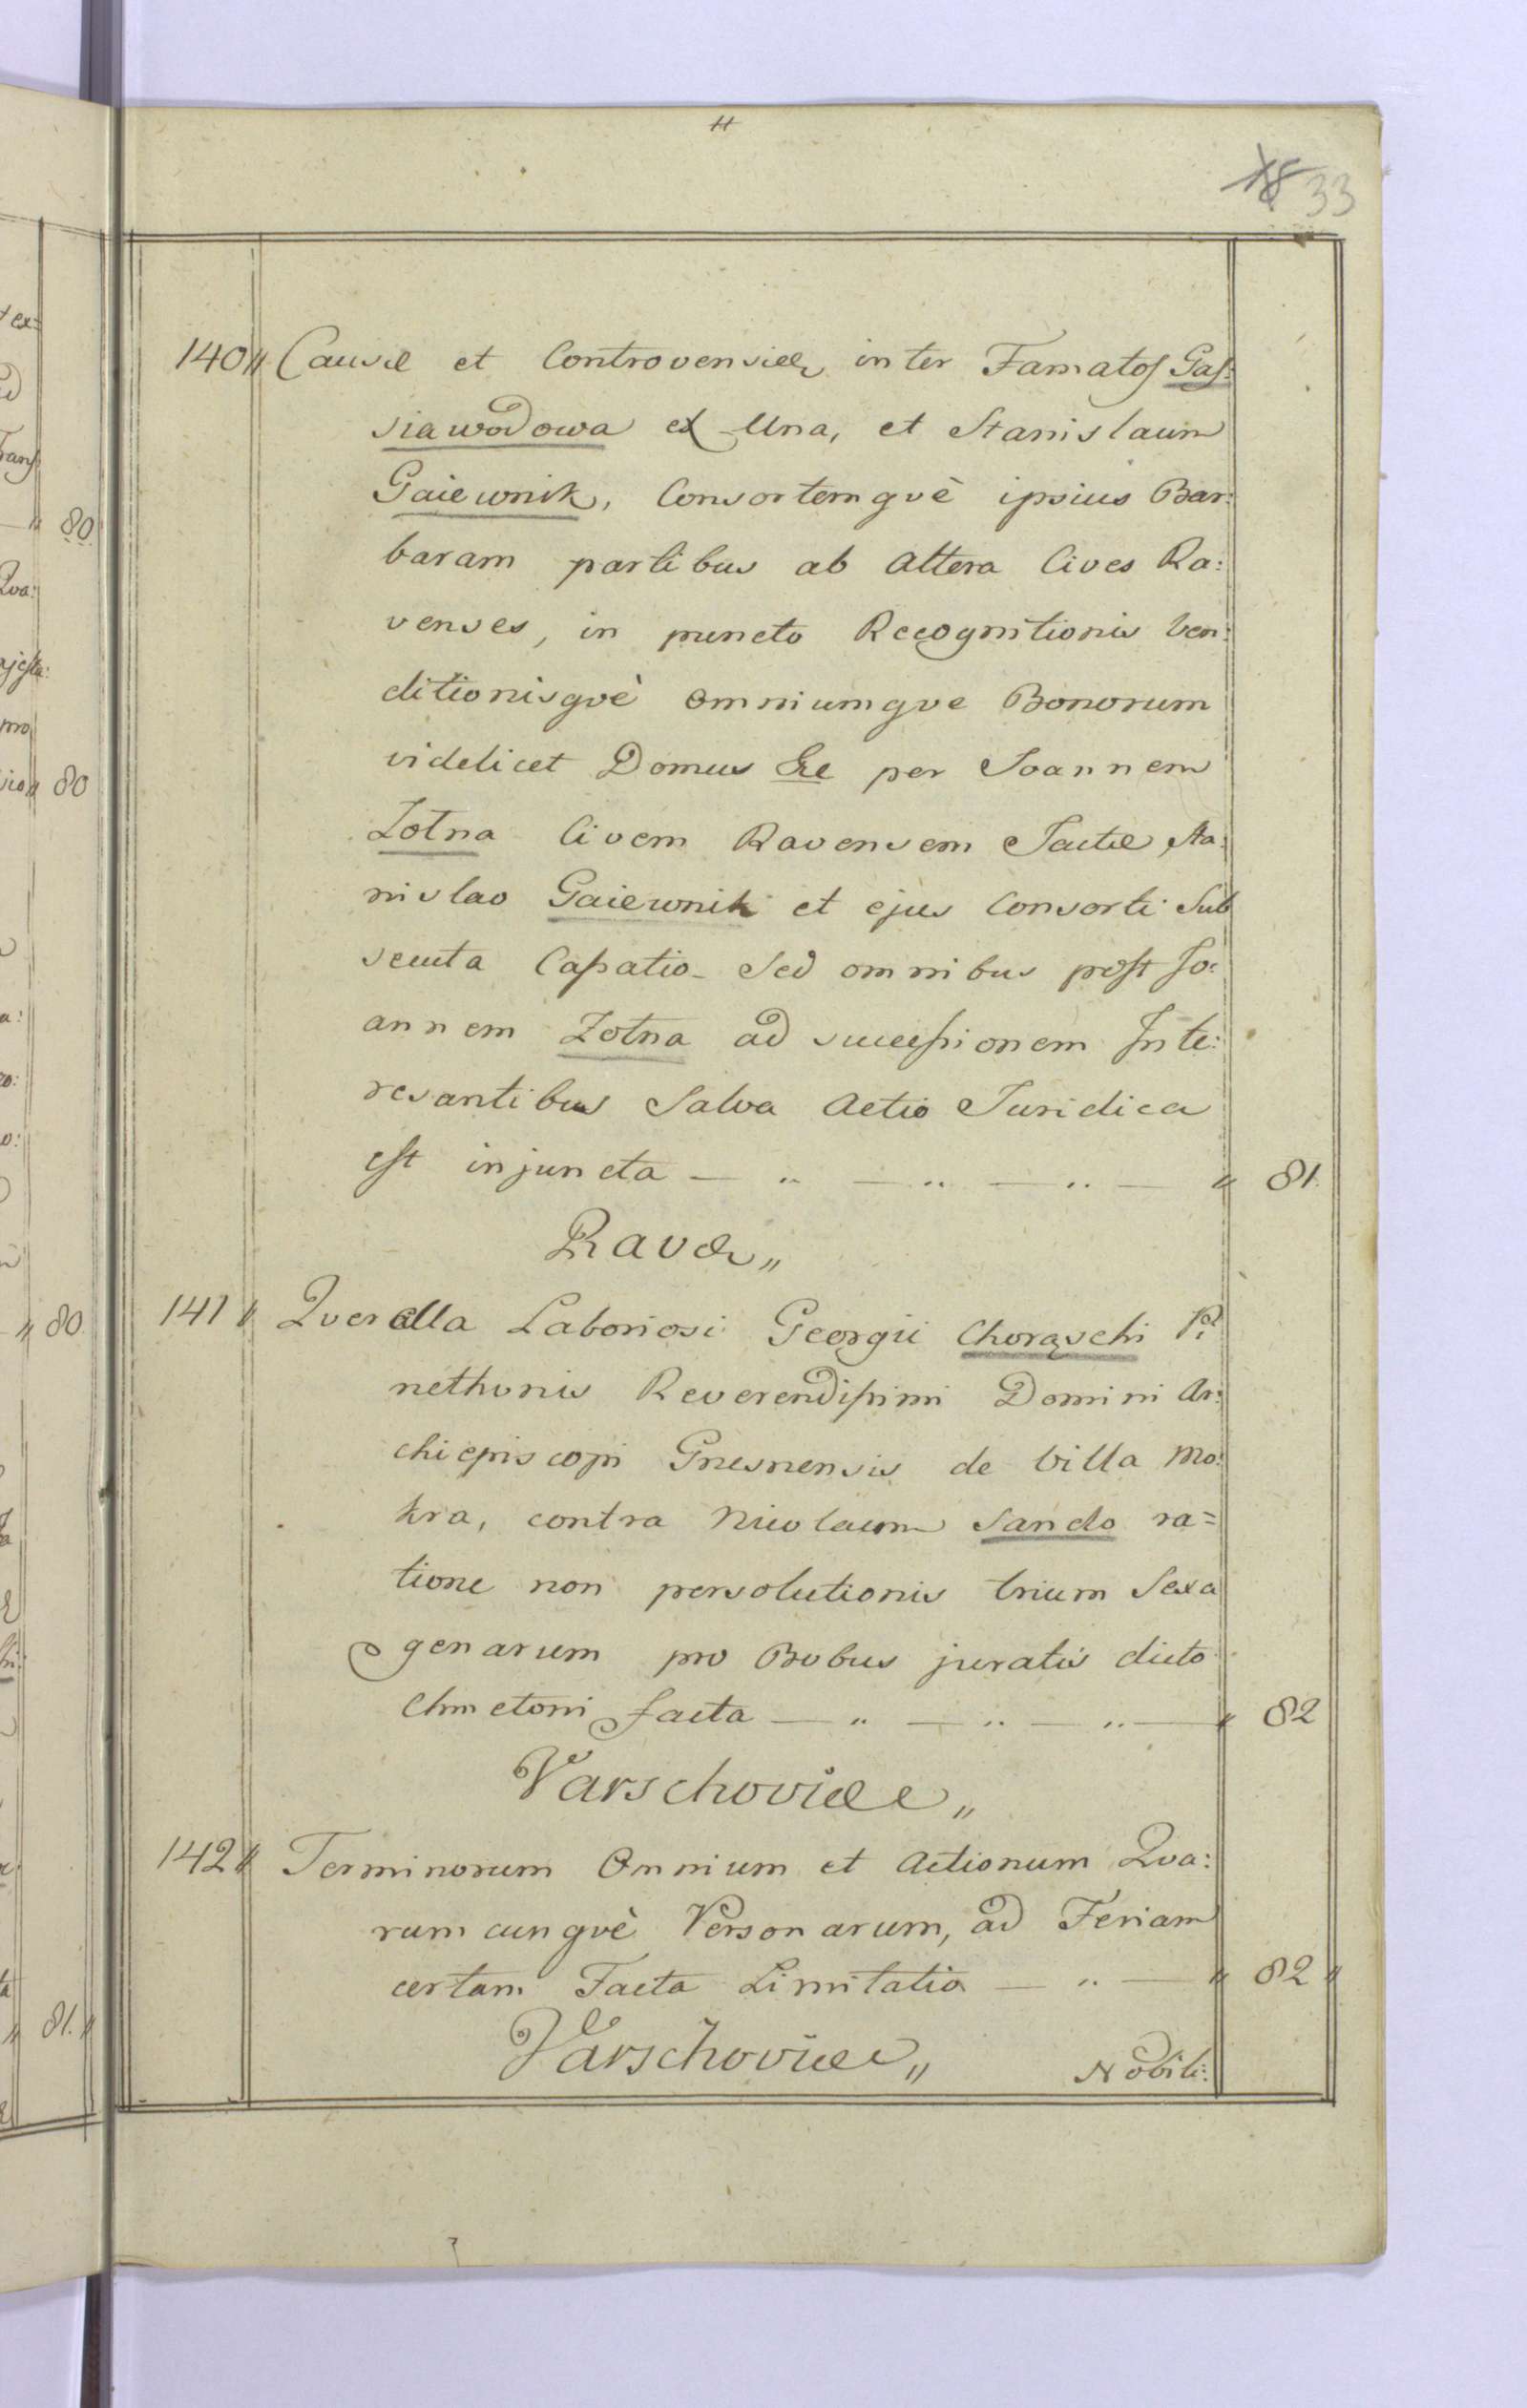 33
140 Causæ et Controversiæ inter Famatos Gas:
siawodowa ex Una, et Stanislaum
Gaiewnik, Consortemqvè ipsius Bar:
baram partibus ab altera Cives Ra:
venses, in puncto Recognitionis Ven:
ditionisqvè omniumqve Bonorum
videlicet Domus &c per Joannem
Zotna Civem Ravensem Factæ Sta:
nislao Gaiewnik et ejus Consorti Sub
secuta Cassatio sed omnibus post Jo:
annem Zotna ad successionem Inte:
resantibus Salva Actio Juridica
est injuncta — „ — „ — „ — „ 81.
Ravæ„
141 Querella Laboriosi Georgii Chorąschi
nethonis Reverendissimi Domini Ar:
chiepiscopi Gnesnensis de Villa Mo:
kra, contra Nicolaum Sando ra=
tione non persolutionis trium Sexa
genarum pro Bobus juratis dicto
Chmetoni facta — „ — „ — „ — „ 82
Varschoviæ„
142 Terminorum Omnium et Actionum Qva:
rumcunqvè Personarum, ad Feriam
certam Facta Limitatio — „ — „ 82„
Varschoviæ„
Nobili:
80
80
80
81.